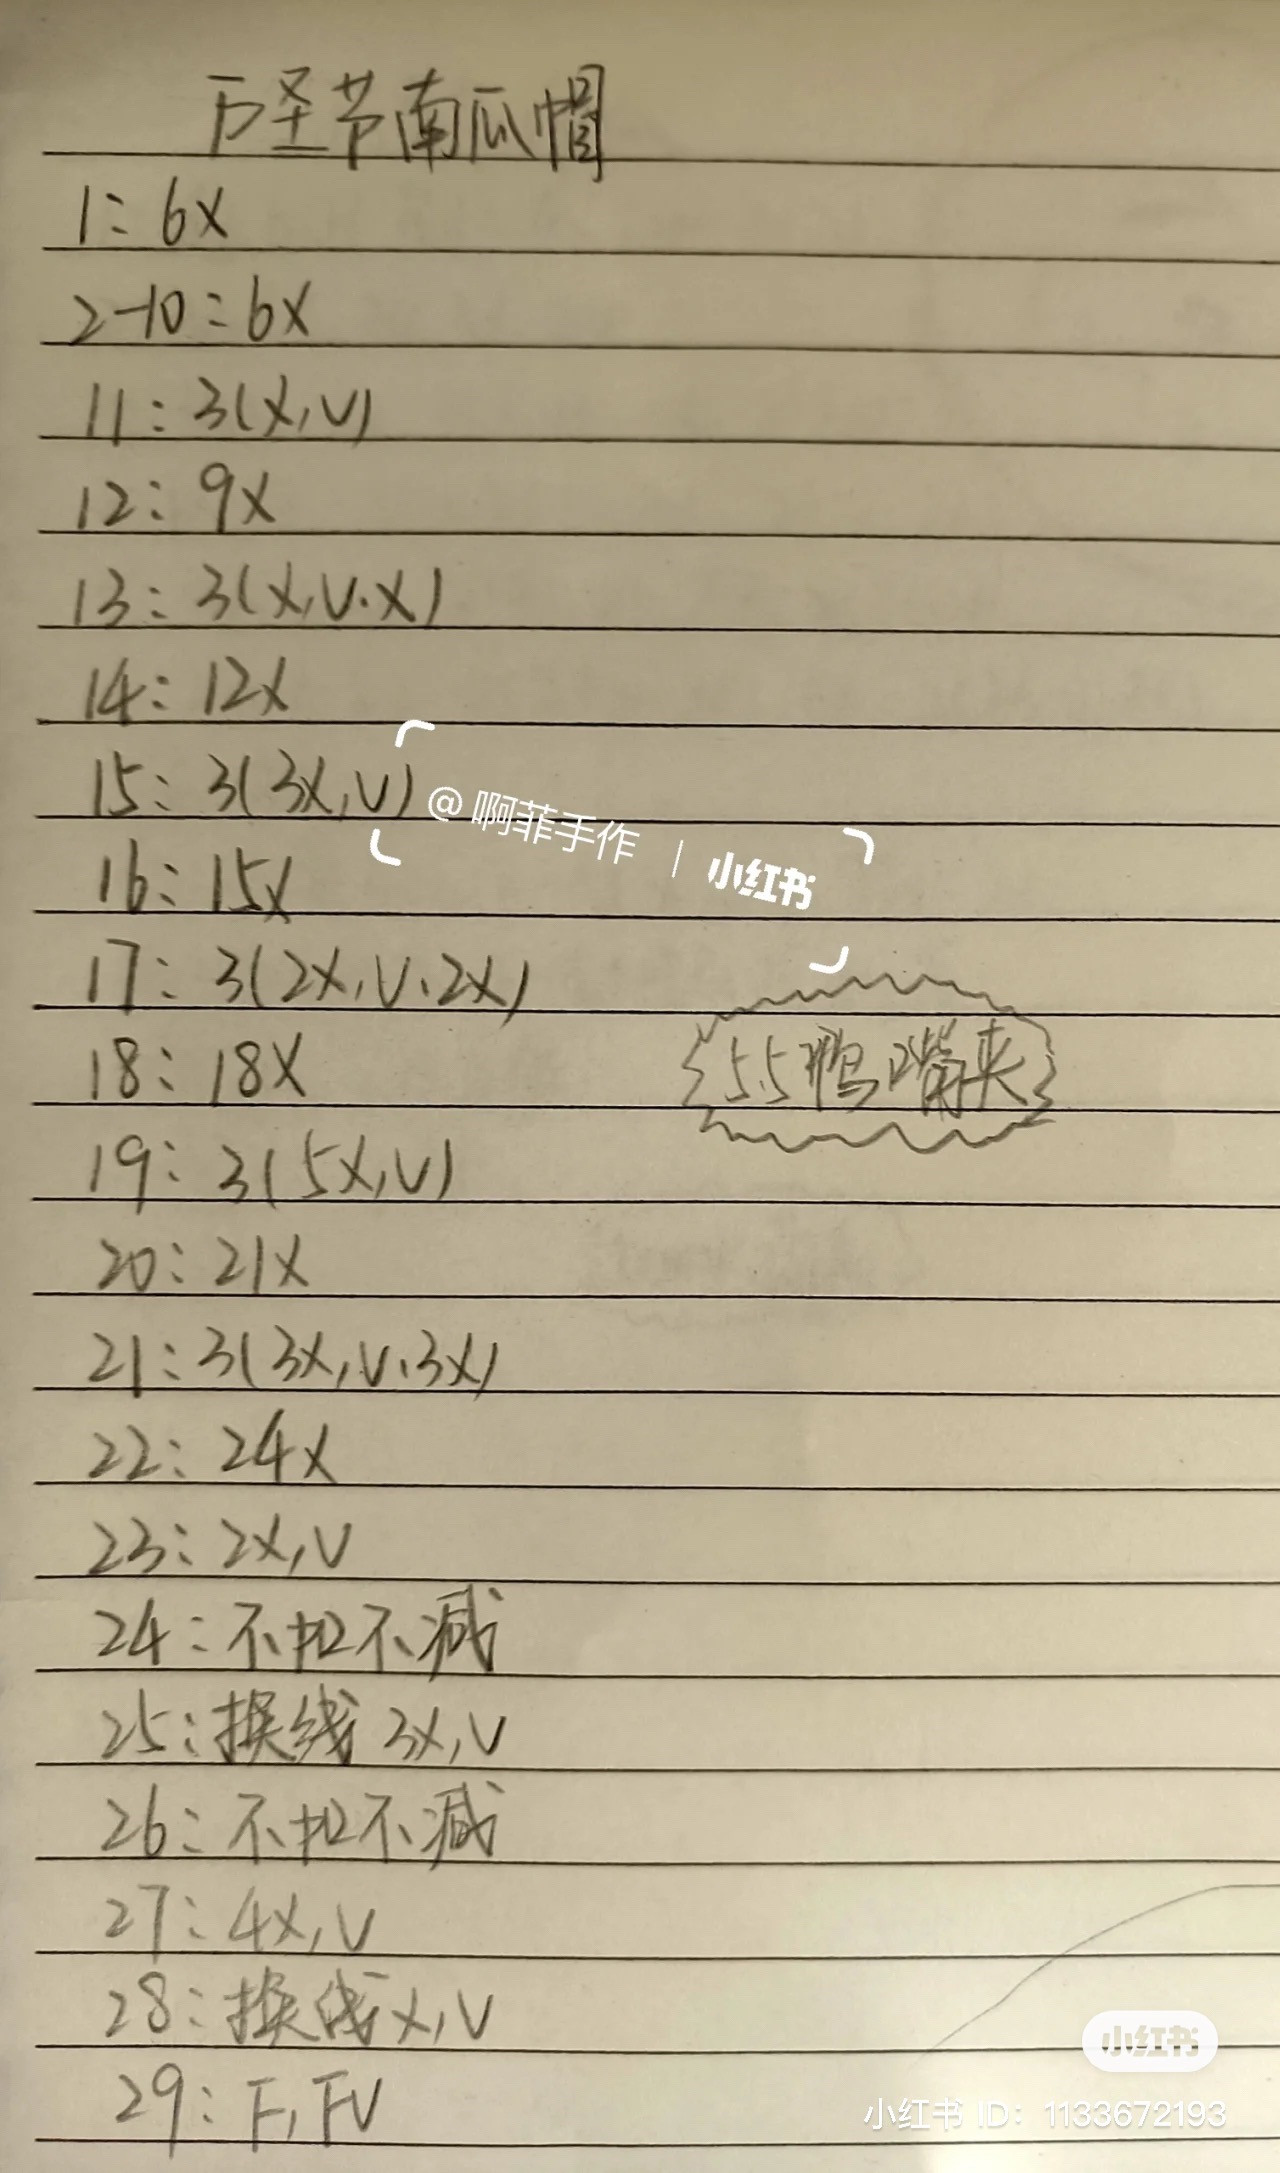 万圣节南瓜帽
1: 6X
2-10: 6X
11: 3(X,V)
12: 9X
13: 3(X,V.X)
14: 12X
15: 3(3X,V)
@ 啊菲手作 | 小红书
16: 15X
17: 3(2X,V、2X)
18: 18X
5.5鸭嘴夹
19: 3(5X,V)
20: 21X
21: 3(3X,V、3X)
22: 24X
23: 2X,V
24: 不加不减
25: 换线 3X,V
26: 不加不减
27: 4X,V
28: 换线 X,V
29: F,FV
小红书
小红书 ID: 1133672193